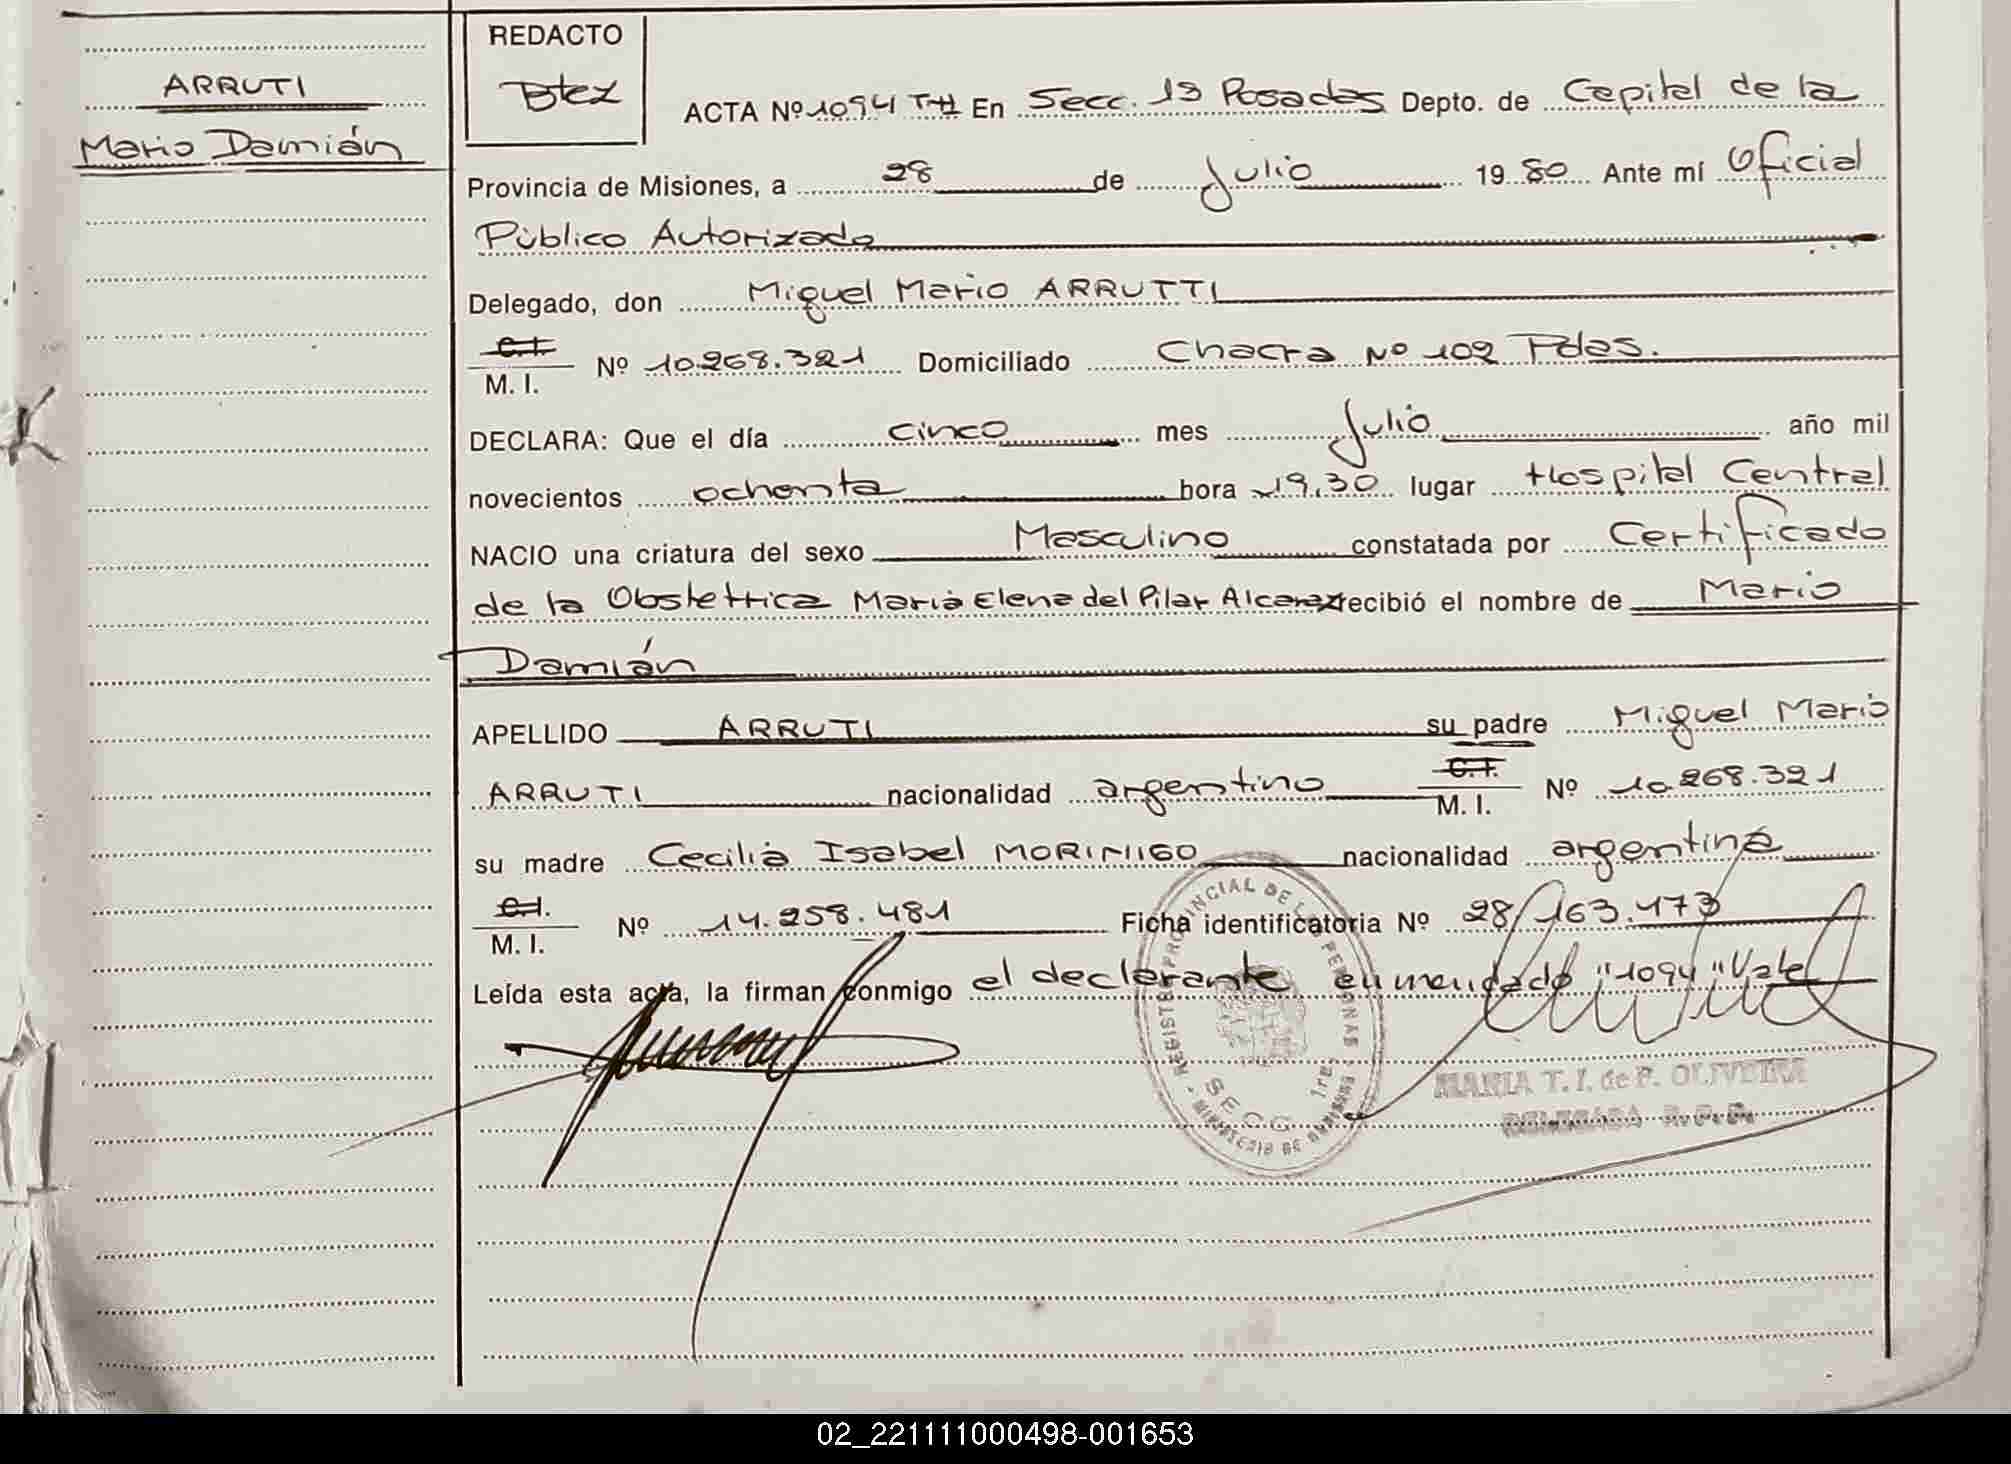 ARRUTI
Mario Damián
REDACTO
Btez
ACTA Nº 1094 TºII En Secc. 1ª Posadas Depto. de Capital de la
Provincia de Misiones, a 28 de Julio 1980 Ante mí Oficial
Público Autorizado
Delegado, don Miguel Mario ARRUTTI
C.I.
M. I. Nº 10.268.321 Domiciliado Chacra Nº 102 Pdas.
DECLARA: Que el día cinco mes Julio año mil
novecientos ochenta hora 19,30 lugar Hospital Central
NACIO una criatura del sexo Masculino constatada por Certificado
de la Obstetrica Maria Elena del Pilar Alcaraz recibió el nombre de Mario
Damián
APELLIDO ARRUTI su padre Miguel Mario
ARRUTI nacionalidad argentino C.I. M. I. Nº 10.268.321
su madre Cecilia Isabel MORINIGO nacionalidad argentina
C.I.
M. I. Nº 14.258.481 Ficha identificatoria Nº 28/163.173
Leída esta acta, la firman conmigo el declarante enmendado "1094" Vale
REGISTRO PROVINCIAL DE LAS PERSONAS
SECC. 1ra.
MINISTERIO DE
MARIA T. I. de F. OLIVEIRA
DELEGADA R.P.P.
02_221111000498-001653